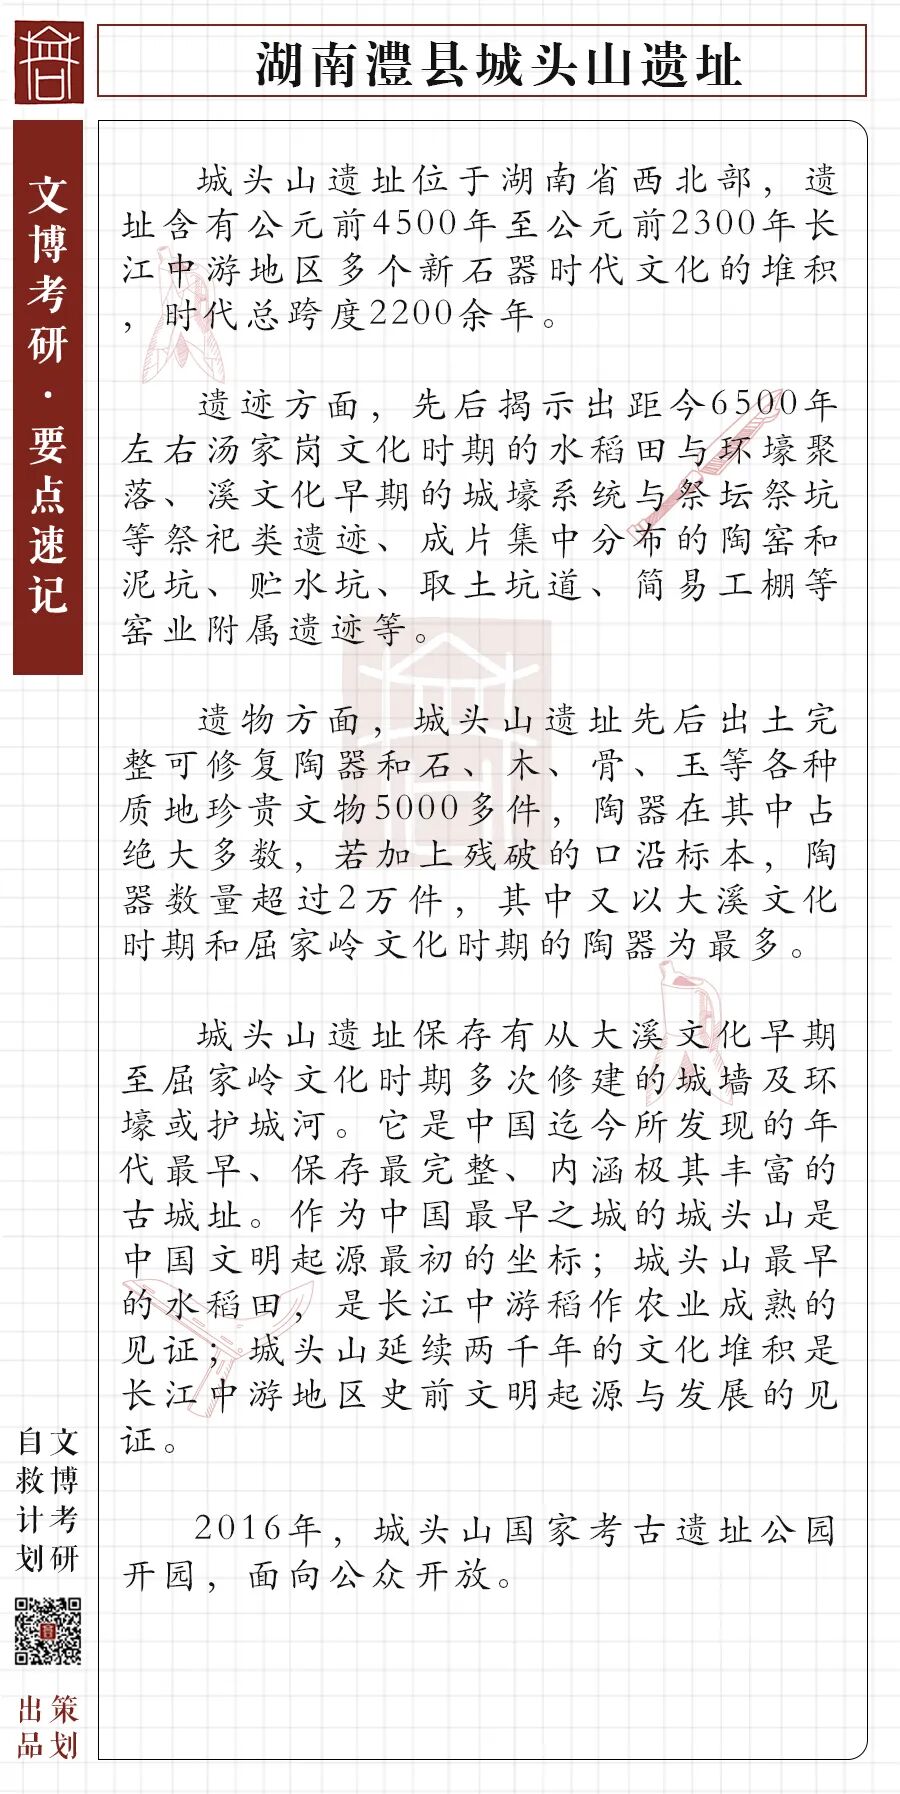 湖南澧县城头山遗址
文博考研·要点速记
城头山遗址位于湖南省西北部，遗
址含有公元前4500年至公元前2300年长
江中游地区多个新石器时代文化的堆积
，时代总跨度2200余年。
遗迹方面，先后揭示出距今6500年
左右汤家岗文化时期的水稻田与环壕聚
落、溪文化早期的城壕系统与祭坛祭坑
等祭祀类遗迹、成片集中分布的陶窑和
泥坑、贮水坑、取土坑道、简易工棚等
窑业附属遗迹等。
遗物方面，城头山遗址先后出土完
整可修复陶器和石、木、骨、玉等各种
质地珍贵文物5000多件，陶器在其中占
绝大多数，若加上残破的口沿标本，陶
器数量超过2万件，其中又以大溪文化
时期和屈家岭文化时期的陶器为最多。
城头山遗址保存有从大溪文化早期
至屈家岭文化时期多次修建的城墙及环
壕或护城河。它是中国迄今所发现的年
代最早、保存最完整、内涵极其丰富的
古城址。作为中国最早之城的城头山是
中国文明起源最初的坐标；城头山最早
的水稻田，是长江中游稻作农业成熟的
见证；城头山延续两千年的文化堆积是
长江中游地区史前文明起源与发展的见
证。
2016年，城头山国家考古遗址公园
开园，面向公众开放。
文博考研
自救计划
策划
出品